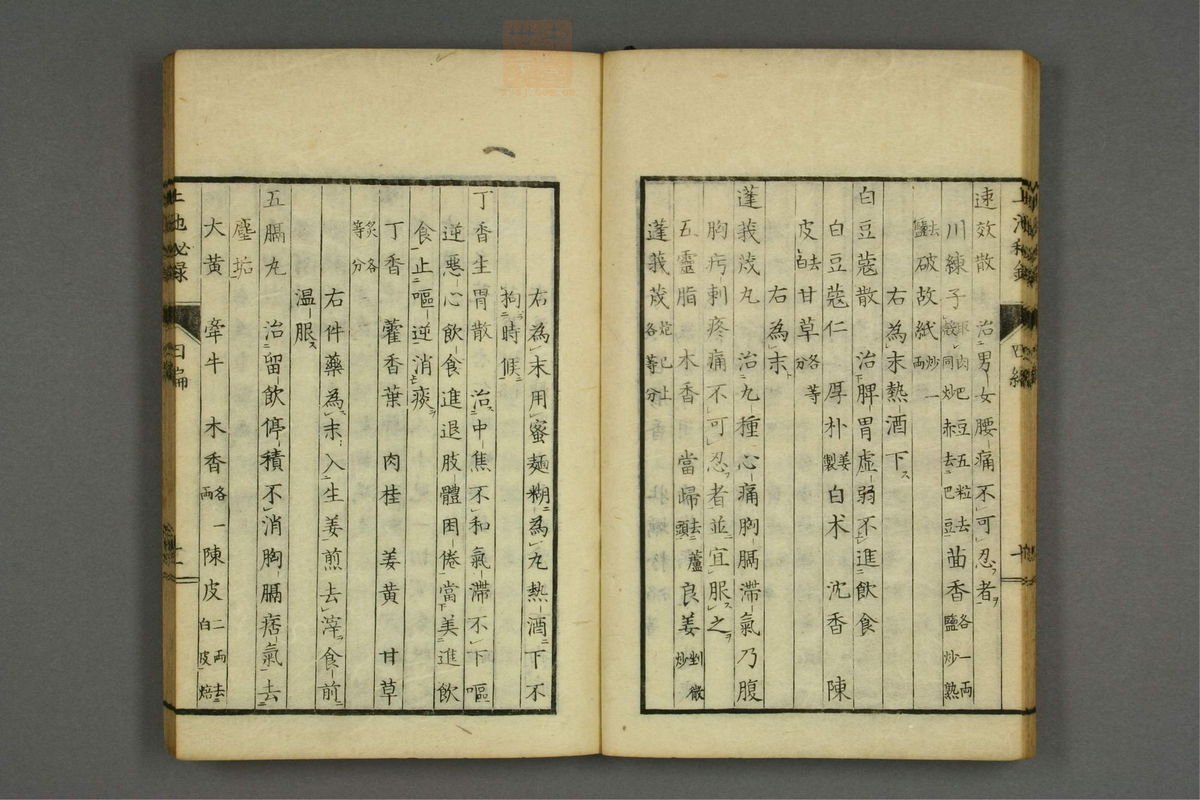 速效散 治男女腰痛不可忍者
川練子 取肉巴豆五粒去殼同炒赤去巴豆 茴香 各一兩鹽炒熟
去鹽 破故紙 炒一兩
右為末熱酒下
白豆蔻散 治脾胃虛弱不進飲食
白豆蔻仁 厚朴 姜製 白朮 沈香 陳
皮 去白 甘草 各等分
右為末
蓬莪茂丸 治九種心痛胸膈滯氣乃腹
胸疞刺疼痛不可忍者並宜服之
五靈脂 木香 當歸 去蘆頭 良姜 剉微炒
蓬莪茂 炮已上各等分
右為末用蜜麵糊為丸熱酒下不
拘時候
丁香生胃散 治中焦不和氣滯不下嘔
逆惡心飲食進退肢體困倦當美進飲
食止嘔逆消痰
丁香 藿香葉 肉桂 姜黃 甘草
炙各等分
右件藥為末入生姜煎去滓食前
溫服
五膈丸 治留飲停積不消胸膈痞氣去
塵垢
大黃 牽牛 木香 各一兩 陳皮 二兩去白皮焙
上池必录 四編